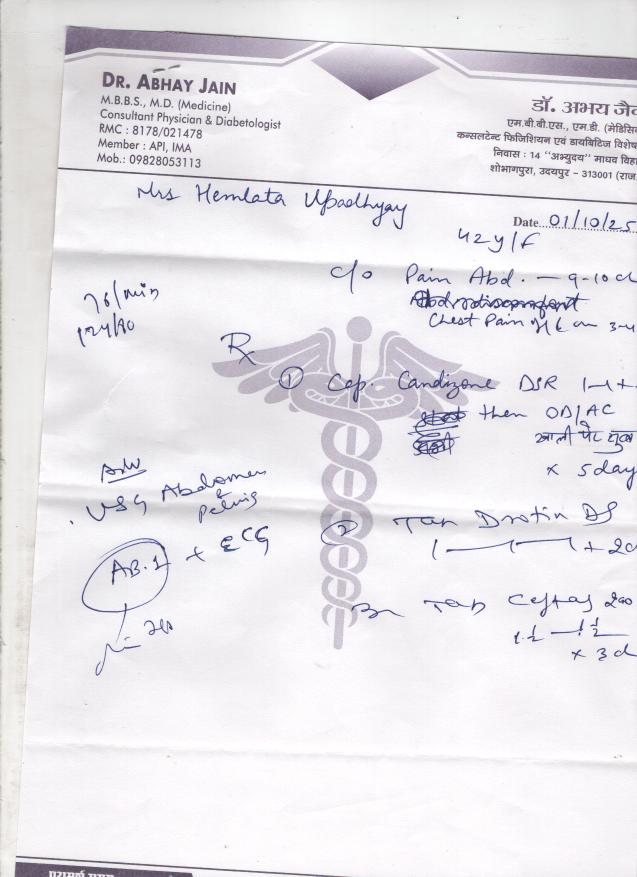 DR. ABHAY JAIN
M.B.B.S., M.D. (Medicine)
Consultant Physician & Diabetologist
RMC : 8178/021478
Member : API, IMA
Mob.: 09828053113
डॉ. अभय जै
एम.बी.बी.एस., एम.डी. (मेडिसि
कन्सलटेन्ट फिजिशियन एवं डायबिटिज विशेष
निवास : 14 "अभ्युदय" माधव विहा
शोभागपुरा, उदयपुर - 313001 (राज.
Mrs Hemlata Upadhyay
Date 01/10/25
42y/F
c/o Pain Abd. — 9-10 d
Chest Pain
76/min
Rx
① Cap. DSR
then OD/AC
खाली पेट
x 5 day
Adv
USG Abdomen & Pelvis
② Tab Drotin DS
AB.1 + ECG
Tab 200
x 3 d